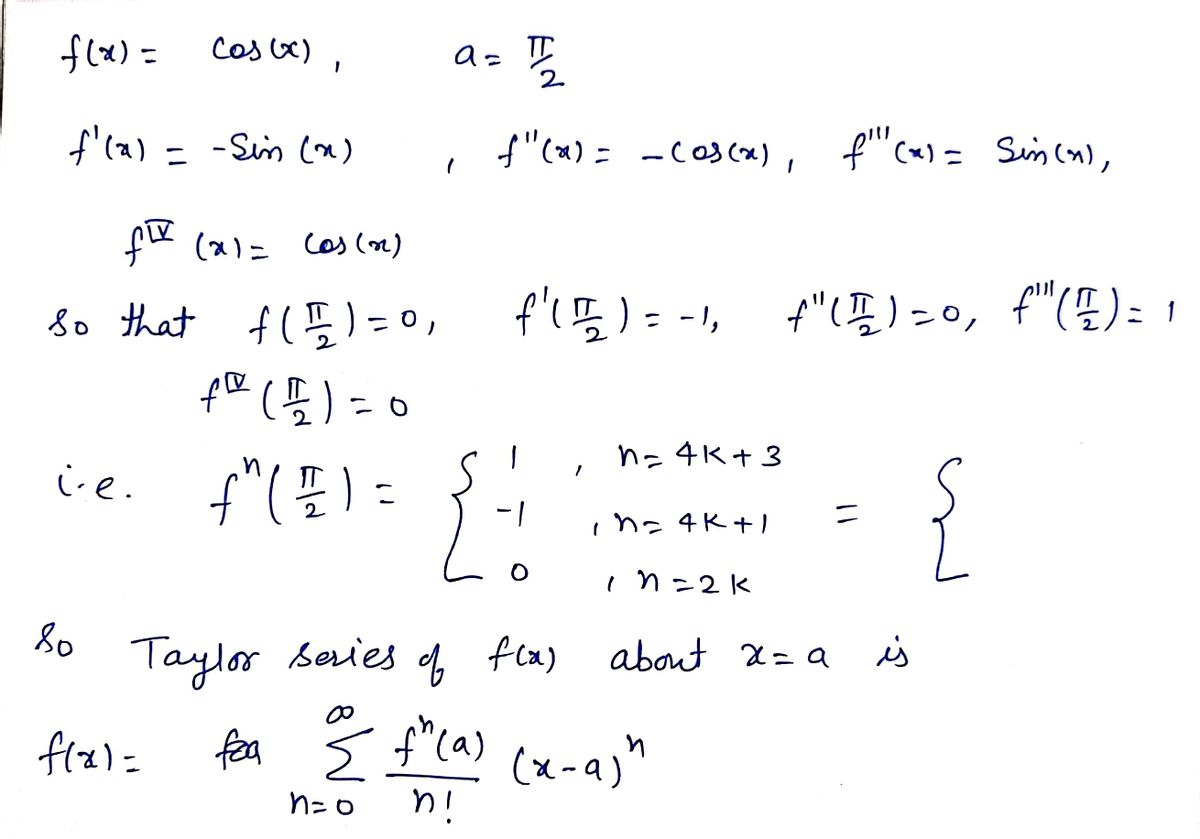 f(x) = Cos(x), a = π/2
f'(x) = -Sin(x), f''(x) = -Cos(x), f'''(x) = Sin(x),
f^IV (x) = Cos(x)
so that f(π/2) = 0, f'(π/2) = -1, f''(π/2) = 0, f'''(π/2) = 1
f^IV (π/2) = 0
i.e. f^n(π/2) = { 1, n = 4K+3
-1, n = 4K+1 = {
0, n = 2K
So Taylor series of f(x) about x = a is
f(x) = ∑_{n=0}^{∞} f^n(a)/n! (x-a)^n